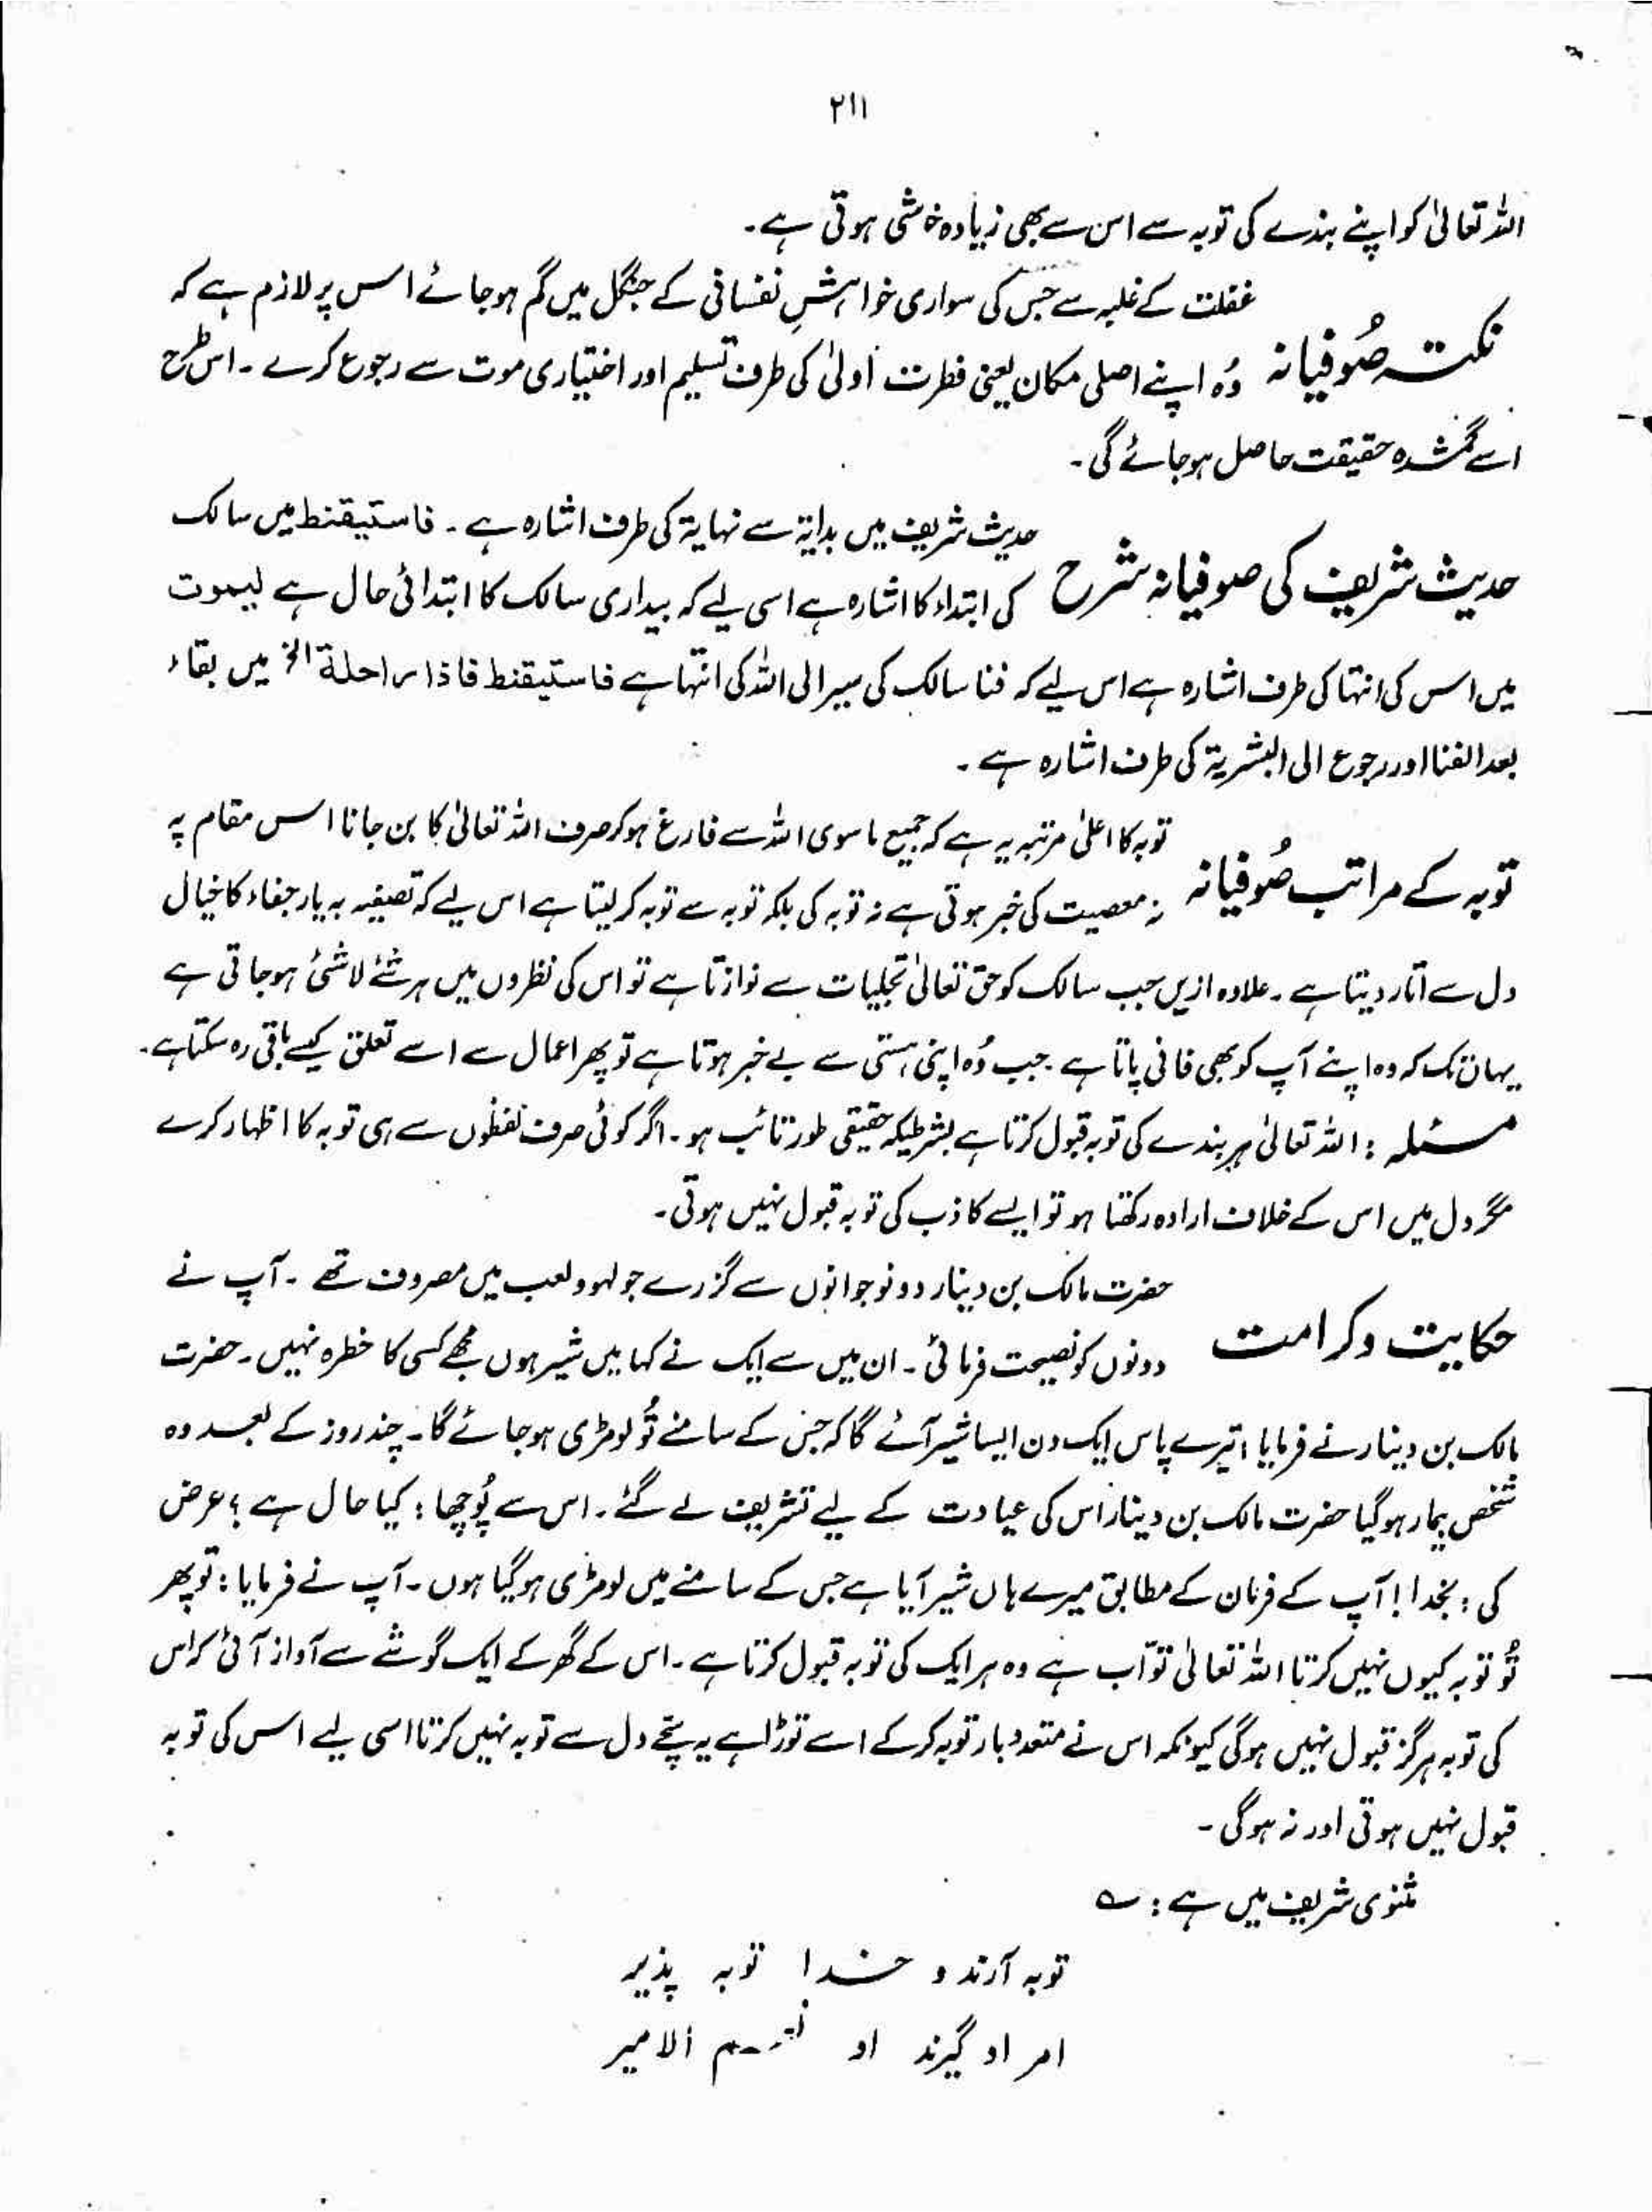 ۲۱۱
اللہ تعالیٰ کو اپنے بندے کی توبہ سے اس سے بھی زیادہ خوشی ہوتی ہے۔
نکتہ صُوفیانہ
غفلت کے غلبہ سے جس کی سواری خواہشِ نفسانی کے جنگل میں گم ہوجائے اس پر لازم ہے کہ
وُہ اپنے اصلی مکان یعنی فطرت اُولیٰ کی طرف تسلیم اور اختیاری موت سے رجوع کرے۔ اس طرح
اسے گمشدہ حقیقت حاصل ہوجائے گی۔
حدیث شریف کی صوفیانہ شرح
حدیث شریف میں بدایۃ سے نہایۃ کی طرف اشارہ ہے۔ فاستیقنط میں سالک
کی ابتداء کا اشارہ ہے اسی لیے کہ بیداری سالک کا ابتدائی حال ہے لیموت
میں اس کی انتہا کی طرف اشارہ ہے اس لیے کہ فنا سالک کی سیر الی اللہ کی انتہا ہے فاستیقنط فاذا راحلۃ الخ میں بقاء
بعد الفنا اور رجوع الی البشریۃ کی طرف اشارہ ہے۔
توبہ کے مراتب صُوفیانہ
توبہ کا اعلیٰ مرتبہ یہ ہے کہ جمیع ماسوی اللہ سے فارغ ہوکر صرف اللہ تعالیٰ کا بن جانا اس مقام پہ
نہ معصیت کی خبر ہوتی ہے نہ توبہ کی بلکہ توبہ سے توبہ کر لیتا ہے اس لیے کہ تصیفہ بہ یار جفاء کا خیال
دل سے اتار دیتا ہے۔ علاوہ ازیں جب سالک کو حق تعالیٰ تجلیات سے نوازتا ہے تو اس کی نظروں میں ہر شئے لاشئ ہوجاتی ہے
یہاں تک کہ وہ اپنے آپ کو بھی فانی پاتا ہے۔ جب وُہ اپنی ہستی سے بے خبر ہوتا ہے تو پھر اعمال سے اسے تعلق کیسے باقی رہ سکتا ہے۔
مسئلہ : اللہ تعالیٰ ہر بندے کی توبہ قبول کرتا ہے بشرطیکہ حقیقی طور تائب ہو۔ اگر کوئی صرف لفظوں سے ہی توبہ کا اظہار کرے
مگر دل میں اس کے خلاف ارادہ رکھتا ہو تو ایسے کاذب کی توبہ قبول نہیں ہوتی۔
حکایت وکرامت
حضرت مالک بن دینار دو نوجوانوں سے گزرے جو لہو و لعب میں مصروف تھے۔ آپ نے
دونوں کو نصیحت فرمائی۔ ان میں سے ایک نے کہا میں شیر ہوں مجھے کسی کا خطرہ نہیں۔ حضرت
مالک بن دینار نے فرمایا : تیرے پاس ایک دن ایسا شیر آئے گا کہ جس کے سامنے تُو لومڑی ہوجائے گا۔ چند روز کے بعد وہ
شخص بیمار ہوگیا حضرت مالک بن دینار اس کی عیادت کے لیے تشریف لے گئے۔ اس سے پُوچھا : کیا حال ہے ؟ عرض
کی : بخدا ! آپ کے فرمان کے مطابق میرے ہاں شیر آیا ہے جس کے سامنے میں لومڑی ہوگیا ہوں۔ آپ نے فرمایا : تو پھر
تُو توبہ کیوں نہیں کرتا اللہ تعالیٰ توّاب ہے وہ ہر ایک کی توبہ قبول کرتا ہے۔ اس کے گھر کے ایک گوشے سے آواز آئی کہ اس
کی توبہ ہرگز قبول نہیں ہوگی کیونکہ اس نے متعدد بار توبہ کرکے اسے توڑا ہے یہ سچے دل سے توبہ نہیں کرتا اسی لیے اس کی توبہ
قبول نہیں ہوتی اور نہ ہوگی۔
مثنوی شریف میں ہے : ؎
توبہ آرند و خدا توبہ پذیر
امر او گیرند او نعم الامیر